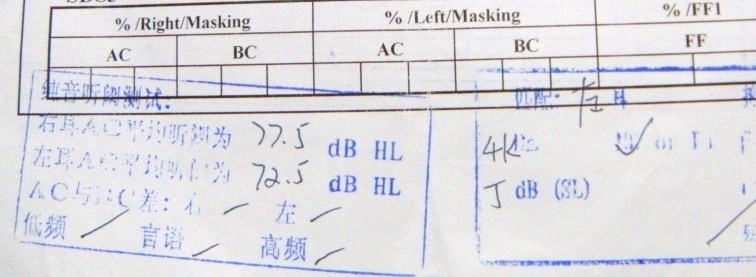 % /Right/Masking % /Left/Masking % /FF1
AC BC AC BC FF
纯音听阈测试:
右耳AC平均听阈为 77.5 dB HL
左耳AC平均听阈为 72.5 dB HL
AC与BC差: 右 左
低频 言语 高频
匹配:
4K
dB (SL)